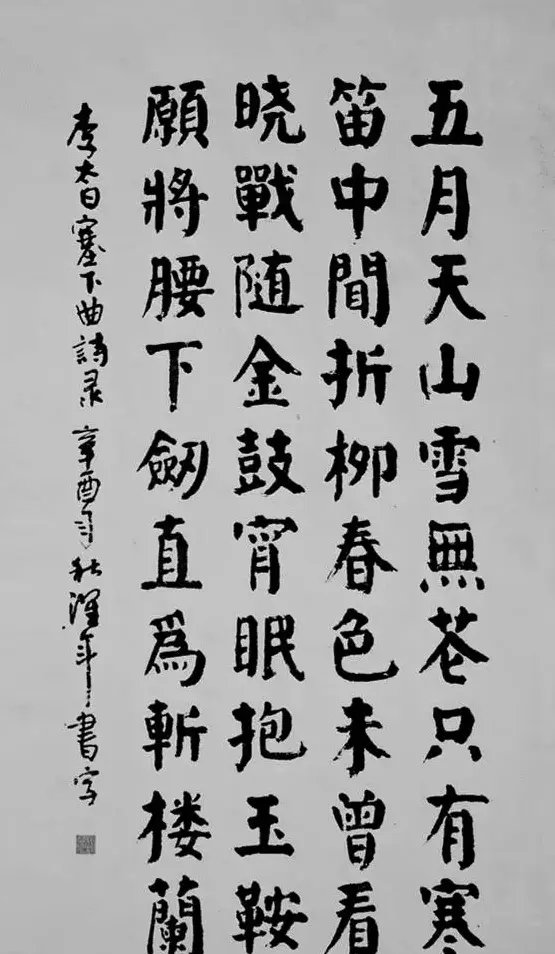 五月天山雪無花只有寒
笛中間折柳春色未曾看
晓戰随金鼓宵眠抱玉鞍
願將腰下劒直為斬楼蘭
李太白塞下曲詩录 辛酉年秋 年書字